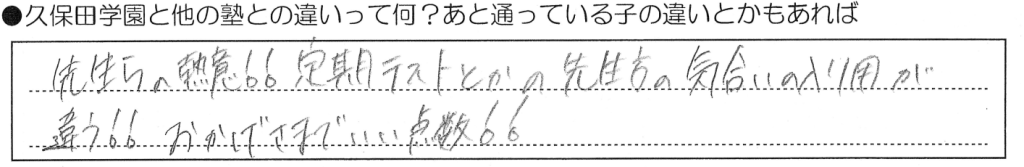 ●久保田学園と他の塾との違いって何?あと通っている子の違いとかもあれば
先生らの熱意!!定期テストとかの先生方の気合いの入り用が
違う!!おかげさまでいい点数!!